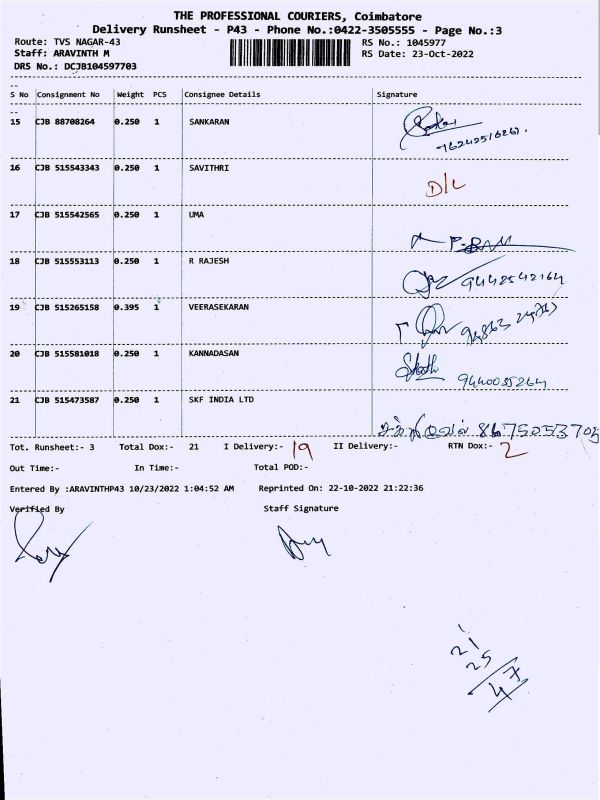 THE PROFESSIONAL COURIERS, Coimbatore
Delivery Runsheet - P43 - Phone No.:0422-3505555 - Page No.:3
Route: TVS NAGAR-43
RS No.: 1045977
Staff: ARAVINTH M
RS Date: 23-Oct-2022
DRS No.: DCJB104597703
S No Consignment No Weight PCS Consignee Details Signature
15 CJB 88708264 0.250 1 SANKARAN
16 CJB 515543343 0.250 1 SAVITHRI D/L
17 CJB 515542565 0.250 1 UMA
18 CJB 515553113 0.250 1 R RAJESH 9442542164
19 CJB 515265158 0.395 1 VEERASEKARAN
20 CJB 515581018 0.250 1 KANNADASAN 9440035264
21 CJB 515473587 0.250 1 SKF INDIA LTD 8675053705
Tot. Runsheet:- 3 Total Dox:- 21 I Delivery:- 19 II Delivery:- RTN Dox:- 2
Out Time:- In Time:- Total POD:-
Entered By :ARAVINTHP43 10/23/2022 1:04:52 AM Reprinted On: 22-10-2022 21:22:36
Verified By Staff Signature
21
25
47